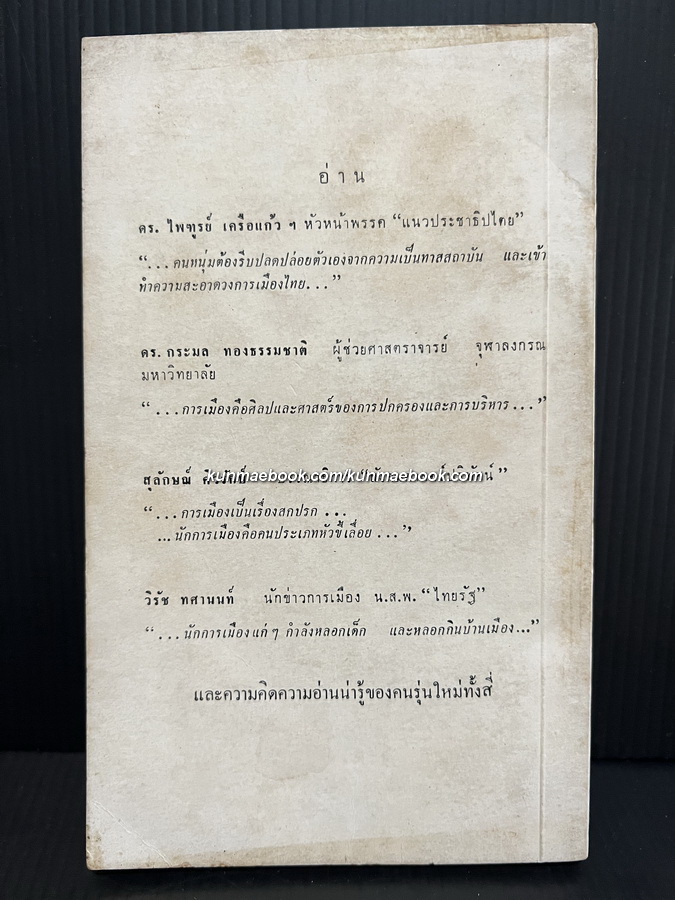 อ่าน
ดร. ไพฑูรย์ เครือแก้ว ฯ หัวหน้าพรรค “แนวประชาธิปไตย”
“...คนหนุ่มต้องรีบปลดปล่อยตัวเองจากความเป็นทาสสถาบัน และเข้า
ทำความสะอาดวงการเมืองไทย...”
ดร. กระมล ทองธรรมชาติ ผู้ช่วยศาสตราจารย์ จุฬาลงกรณ
มหาวิทยาลัย
“...การเมืองคือศิลปและศาสตร์ของการปกครองและการบริหาร...”
สุลักษณ์ ศิวรักษ์
kunmaebook.com/kunmaebook.com
“...การเมืองเป็นเรื่องสกปรก...
...นักการเมืองคือคนประเภทหัวขี้เลื่อย...”
วิรัช ทศานนท์ นักข่าวการเมือง น.ส.พ. “ไทยรัฐ”
“...นักการเมืองแก่ ๆ กำลังหลอกเด็ก และหลอกกินบ้านเมือง...”
และความคิดความอ่านน่ารู้ของคนรุ่นใหม่ทั้งสี่